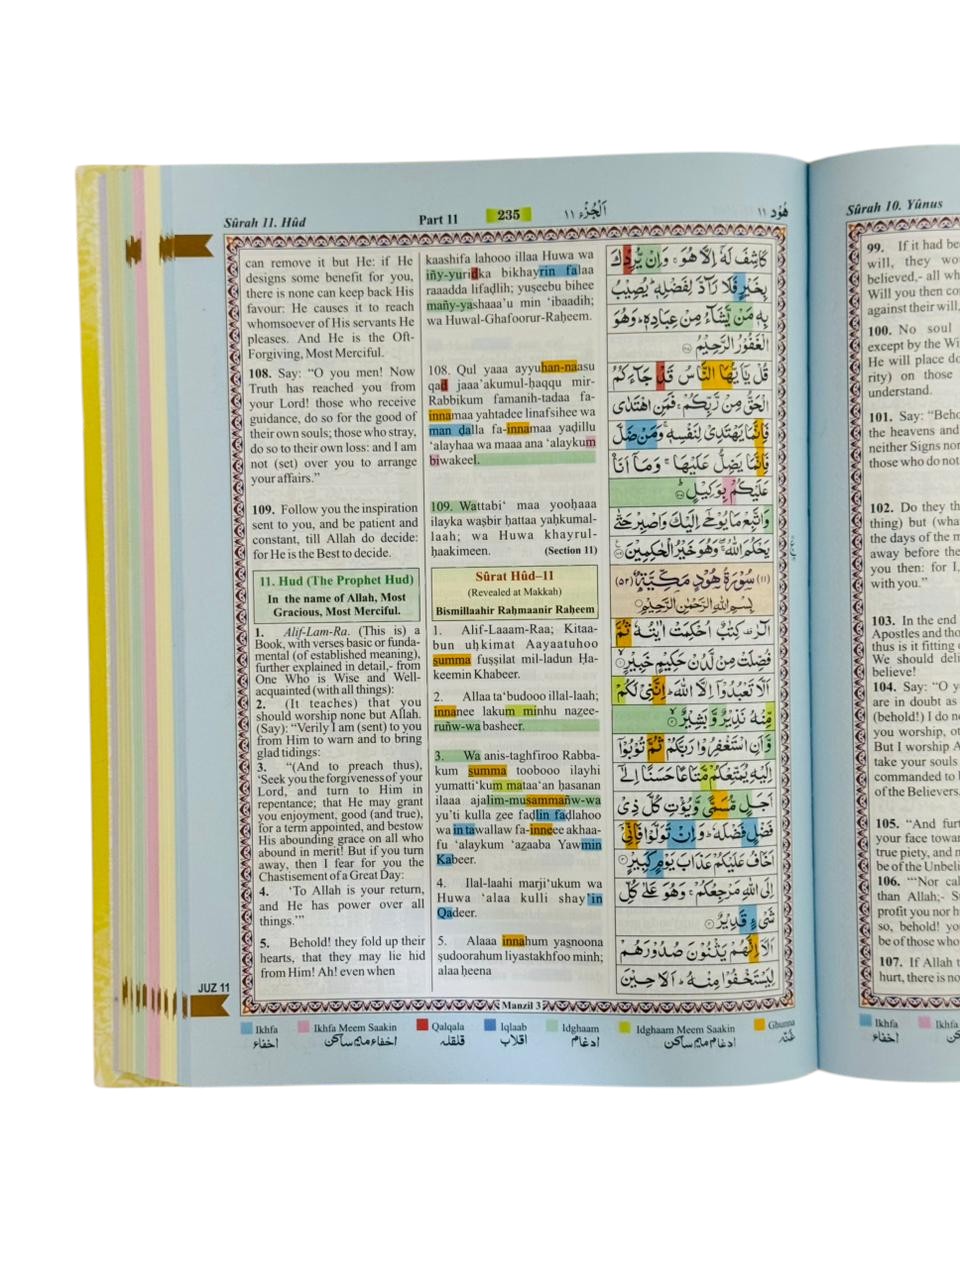 Sûrah 11. Hûd
Part 11
235
اَلْجُزْء ١١
هُوْد ١١
can remove it but He: if He
designs some benefit for you,
there is none can keep back His
favour: He causes it to reach
whomsoever of His servants He
pleases. And He is the Oft-
Forgiving, Most Merciful.
108. Say: “O you men! Now
Truth has reached you from
your Lord! those who receive
guidance, do so for the good of
their own souls; those who stray,
do so to their own loss: and I am
not (set) over you to arrange
your affairs.”
109. Follow you the inspiration
sent to you, and be patient and
constant, till Allah do decide:
for He is the Best to decide.
11. Hud (The Prophet Hud)
In the name of Allah, Most
Gracious, Most Merciful.
1. Alif-Lam-Ra. (This is) a
Book, with verses basic or funda-
mental (of established meaning),
further explained in detail,- from
One Who is Wise and Well-
acquainted (with all things):
2. (It teaches) that you
should worship none but Allah.
(Say): “Verily I am (sent) to you
from Him to warn and to bring
glad tidings:
3. “(And to preach thus),
‘Seek you the forgiveness of your
Lord, and turn to Him in
repentance; that He may grant
you enjoyment, good (and true),
for a term appointed, and bestow
His abounding grace on all who
abound in merit! But if you turn
away, then I fear for you the
Chastisement of a Great Day:
4. ‘To Allah is your return,
and He has power over all
things.’”
5. Behold! they fold up their
hearts, that they may lie hid
from Him! Ah! even when
kaashifa lahooo illaa Huwa wa
iñy-yuridka bikhayrin falaa
raaadda lifaḍlih; yuṣeebu bihee
mañy-yashaaa’u min ‘ibaadih;
wa Huwal-Ghafoorur-Raḥeem.
108. Qul yaaa ayyuhan-naasu
qad jaaa’akumul-ḥaqqu mir-
Rabbikum famanih-tadaa fa-
innamaa yahtadee linafsihee wa
man dalla fa-innamaa yaḍillu
‘alayhaa wa maaa ana ‘alaykum
biwakeel.
109. Wattabi‘ maa yooḥaaa
ilayka waṣbir ḥattaa yaḥkumal-
laah; wa Huwa khayrul-
ḥaakimeen. (Section 11)
Sûrat Hûd–11
(Revealed at Makkah)
Bismillaahir Raḥmaanir Raḥeem
1. Alif-Laaam-Raa; Kitaa-
bun uḥkimat Aayaatuhoo
summa fuṣṣilat mil-ladun Ḥa-
keemin Khabeer.
2. Allaa ta‘budooo illal-laah;
innanee lakum minhu nazee-
ruñw-wa basheer.
3. Wa anis-taghfiroo Rabba-
kum summa toobooo ilayhi
yumatti‘kum mataa‘an ḥasanan
ilaaa ajalim-musammañw-wa
yu’ti kulla zee faḍlin faḍlahoo
wa in tawallaw fa-inneee akhaa-
fu ‘alaykum ‘azaaba Yawmin
Kabeer.
4. Ilal-laahi marji‘ukum wa
Huwa ‘alaa kulli shay’in
Qadeer.
5. Alaaa innahum yasnoona
ṣudoorahum liyastakhfoo minh;
alaa ḥeena
كَاشِفَ لَهٗۤ اِلَّا هُوَ ۚ وَاِنْ يُّرِدْكَ
بِخَيْرٍ فَلَا رَآدَّ لِفَضْلِهٖ ؕ يُصِيْبُ
بِهٖ مَنْ يَّشَآءُ مِنْ عِبَادِهٖ ؕ وَهُوَ
الْغَفُوْرُ الرَّحِيْمُ
قُلْ يٰۤاَيُّهَا النَّاسُ قَدْ جَآءَكُمُ
الْحَقُّ مِنْ رَّبِّكُمْ ۚ فَمَنِ اهْتَدٰى
فَاِنَّمَا يَهْتَدِيْ لِنَفْسِهٖ ۚ وَمَنْ ضَلَّ
فَاِنَّمَا يَضِلُّ عَلَيْهَا ۚ وَمَاۤ اَنَا
عَلَيْكُمْ بِوَكِيْلٍ
وَاتَّبِعْ مَا يُوْحٰۤى اِلَيْكَ وَاصْبِرْ حَتّٰى
يَحْكُمَ اللّٰهُ ۚ وَهُوَ خَيْرُ الْحٰكِمِيْنَ
(١١) سُوْرَةُ هُوْدٍ مَكِّيَّةٌ (٥٢)
بِسْمِ اللّٰهِ الرَّحْمٰنِ الرَّحِيْمِ
الٓرٰ ۚ كِتٰبٌ اُحْكِمَتْ اٰيٰتُهٗ ثُمَّ
فُصِّلَتْ مِنْ لَّدُنْ حَكِيْمٍ خَبِيْرٍ
اَلَّا تَعْبُدُوْۤا اِلَّا اللّٰهَ ؕ اِنَّنِيْ لَكُمْ
مِّنْهُ نَذِيْرٌ وَّبَشِيْرٌ
وَّاَنِ اسْتَغْفِرُوْا رَبَّكُمْ ثُمَّ تُوْبُوْۤا
اِلَيْهِ يُمَتِّعْكُمْ مَّتَاعًا حَسَنًا اِلٰۤى
اَجَلٍ مُّسَمًّى وَّيُؤْتِ كُلَّ ذِيْ
فَضْلٍ فَضْلَهٗ ؕ وَاِنْ تَوَلَّوْا فَاِنِّيْۤ
اَخَافُ عَلَيْكُمْ عَذَابَ يَوْمٍ كَبِيْرٍ
اِلَى اللّٰهِ مَرْجِعُكُمْ ۚ وَهُوَ عَلٰى كُلِّ
شَيْءٍ قَدِيْرٌ
اَلَاۤ اِنَّهُمْ يَثْنُوْنَ صُدُوْرَهُمْ
لِيَسْتَخْفُوْا مِنْهُ ؕ اَلَا حِيْنَ
Manzil 3
JUZ 11
Ikhfa
Ikhfa Meem Saakin
Qalqala
Iqlaab
Idghaam
Idghaam Meem Saakin
Ghunna
اخفاء
اخفاء میم ساکن
قلقلہ
اقلاب
ادغام
ادغام میم ساکن
غنّہ
Sûrah 10. Yûnus
99. If it had be
will, they wo
believed,- all wh
Will you then co
against their will,
100. No soul
except by the Wi
He will place do
rity) on those
understand.
101. Say: “Beho
the heavens and
neither Signs nor
those who do not
102. Do they th
thing) but (wha
the days of the m
away before the
you then: for I,
with you.”
103. In the end
Apostles and tho
thus is it fitting o
We should deli
believe!
104. Say: “O y
are in doubt as
(behold!) I do no
you worship, ot
But I worship A
take your souls
commanded to b
of the Believers.
105. “And furt
your face towar
true piety, and n
be of the Unbeli
106. “‘Nor cal
than Allah;- S
profit you nor h
so, behold! yo
be of those who
107. If Allah t
hurt, there is no
Ikhfa
Ikhfa
اخفاء